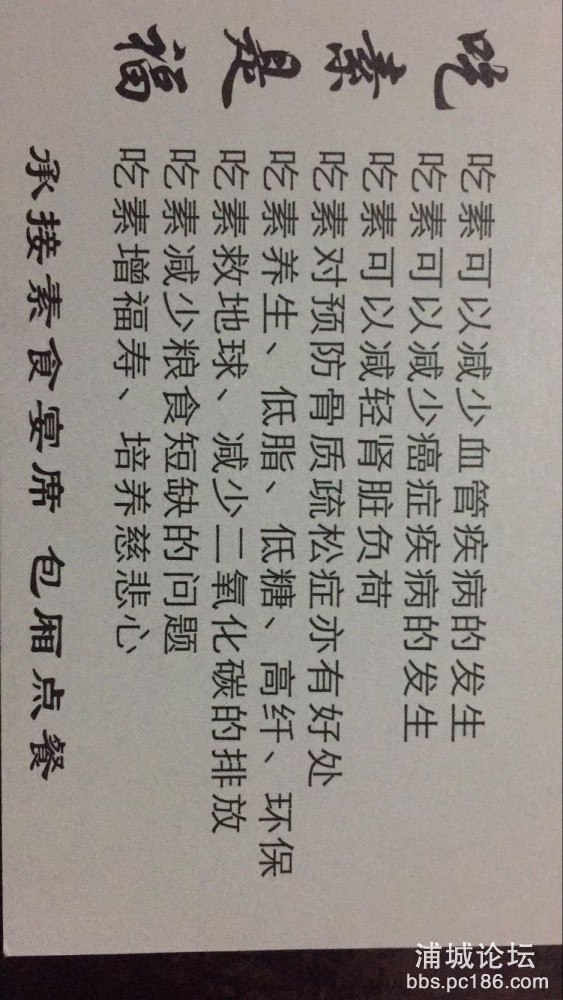 吃素是福
吃素可以减少血管疾病的发生
吃素可以减少癌症疾病的发生
吃素可以减轻肾脏负荷
吃素对预防骨质疏松症亦有好处
吃素养生、低脂、低糖、高纤、环保
吃素救地球、减少二氧化碳的排放
吃素减少粮食短缺的问题
吃素增福寿、培养慈悲心
承接素食宴席 包厢点餐
浦城论坛
bbs.pc186.com